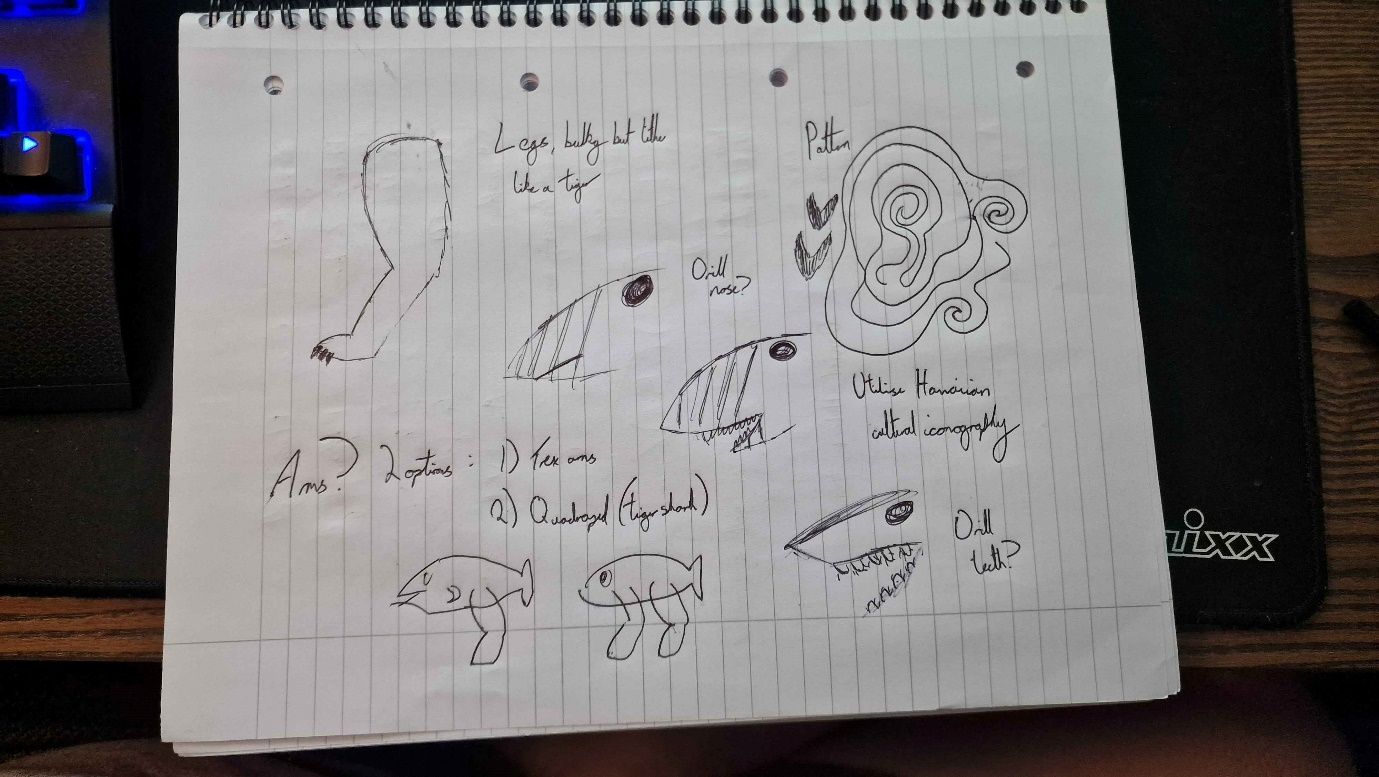 Legs, bulky but lithe
like a tiger
Pattern
Drill
nose?
Utilise Hawaiian
cultural iconography
Arms? 2 options: 1) Trex arms
2) Quadraped (tiger shark)
Drill
teeth?
nixx